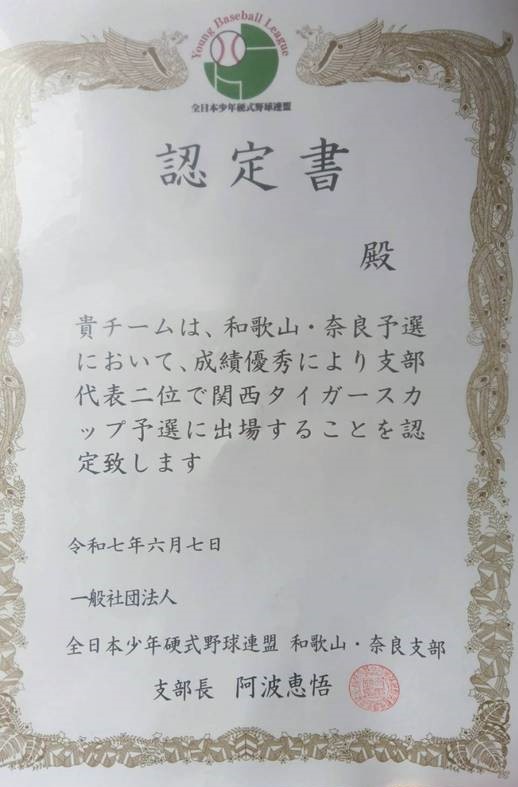 Young Baseball League
全日本少年硬式野球連盟
認定書
殿
貴チームは、和歌山・奈良予選
において、成績優秀により支部
代表二位で関西タイガースカ
ップ予選に出場することを認
定致します
令和七年六月七日
一般社団法人
全日本少年硬式野球連盟 和歌山・奈良支部
支部長 阿波恵悟